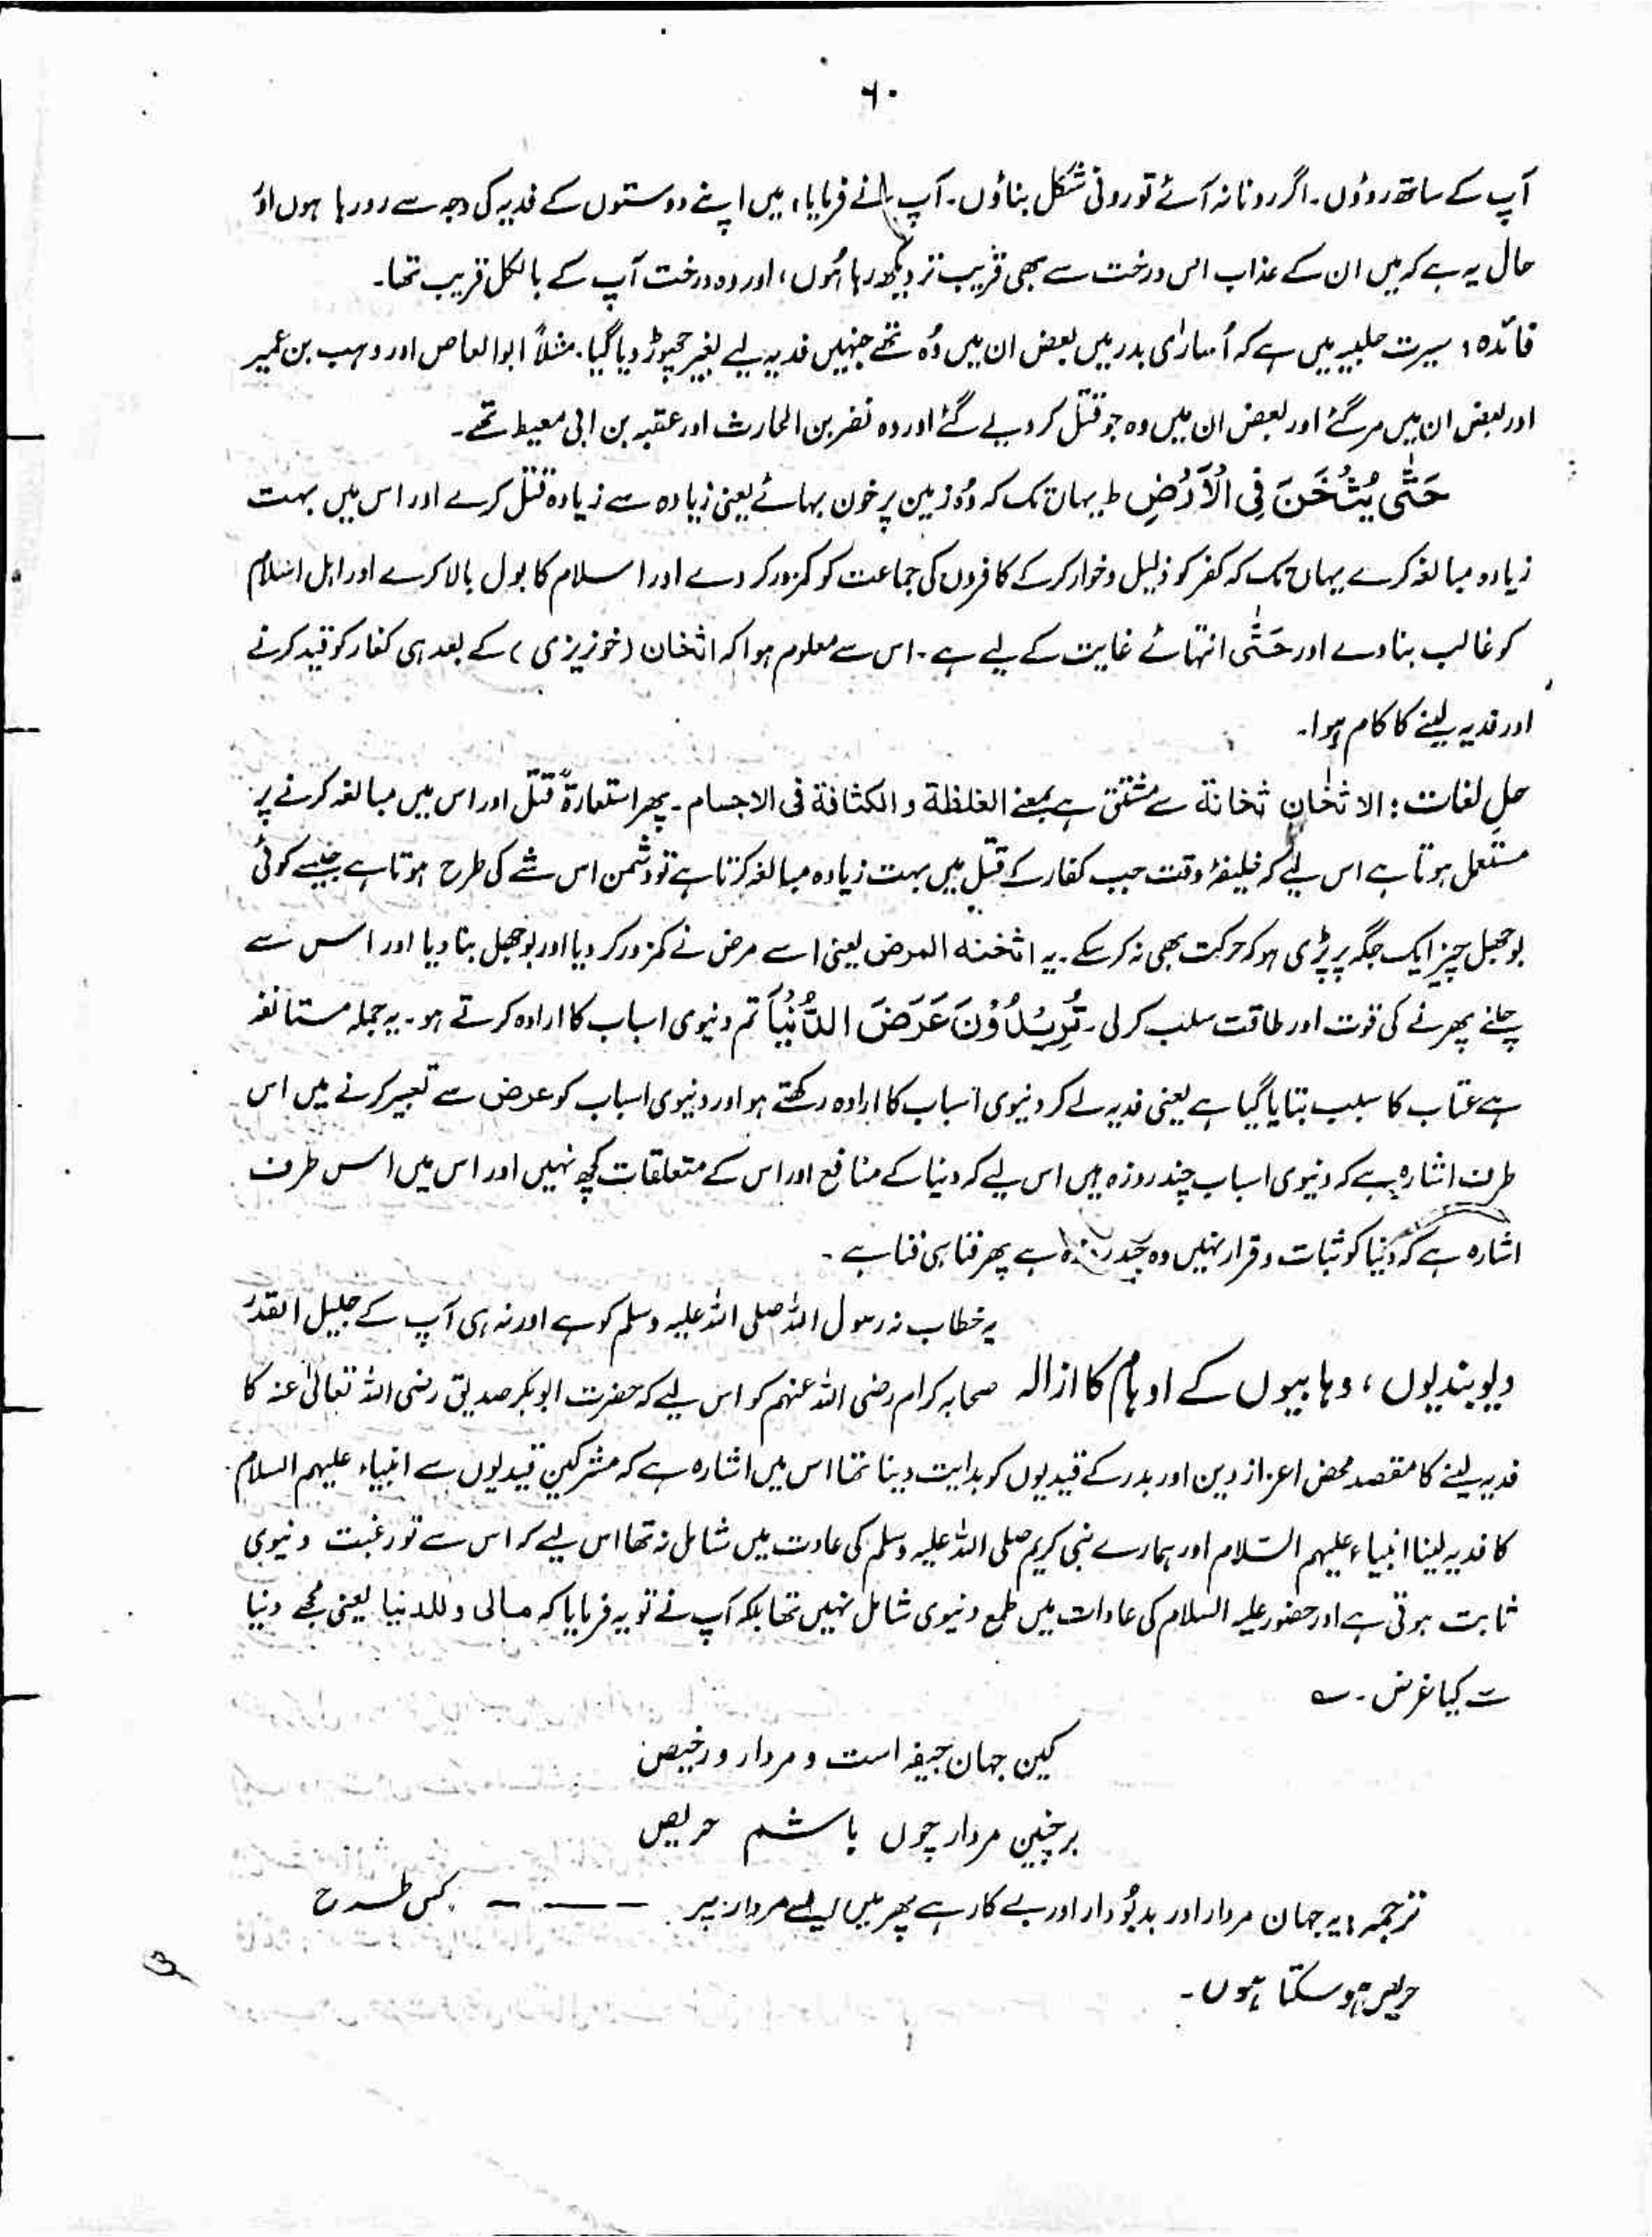 ۶۰
آپ کے ساتھ روؤں۔ اگر رونا نہ آئے تو رونی شکل بناؤں۔ آپ نے فرمایا، میں اپنے دوستوں کے فدیہ کی وجہ سے رو رہا ہوں اور
حال یہ ہے کہ میں ان کے عذاب اس درخت سے بھی قریب تر دیکھ رہا ہُوں، اور وہ درخت آپ کے بالکل قریب تھا۔
فائدہ: سیرت حلبیہ میں ہے کہ اُساریٰ بدر میں بعض ان میں وُہ تھے جنہیں فدیہ لیے بغیر چھوڑ دیا گیا۔ مثلاً ابوالعاص اور وہب بن عمیر
اور بعض ان میں مر گئے اور بعض ان میں وہ جو قتل کر دیے گئے اور وہ نضر بن الحارث اور عقبہ بن ابی معیط تھے۔
حَتّٰی یُثْخِنَ فِی الْاَرْضِ ط یہاں تک کہ وُہ زمین پر خون بہائے یعنی زیادہ سے زیادہ قتل کرے اور اس میں بہت
زیادہ مبالغہ کرے یہاں تک کہ کفر کو ذلیل و خوار کرکے کافروں کی جماعت کو کمزور کر دے اور اسلام کا بول بالا کرے اور اہل اسلام
کو غالب بنا دے اور حَتّٰی انتہائے غایت کے لیے ہے۔ اس سے معلوم ہوا کہ اثخان (خونریزی) کے بعد ہی کفار کو قید کرنے
اور فدیہ لینے کا کام ہوا۔
حلِ لغات: الاثخان ثخانة سے مشتق ہے بمعنے الغلظة و الکثافة فی الاجسام۔ پھر استعارةً قتل اور اس میں مبالغہ کرنے پر
مستعمل ہوتا ہے اس لیے کہ خلیفۂ وقت جب کفار کے قتل میں بہت زیادہ مبالغہ کرتا ہے تو دشمن اس شے کی طرح ہوتا ہے جیسے کوئی
بوجھل چیز ایک جگہ پر پڑی ہو کہ حرکت بھی نہ کر سکے۔ یہ اثخنه المرض یعنی اسے مرض نے کمزور کر دیا اور بوجھل بنا دیا اور اس سے
چلنے پھرنے کی قوت اور طاقت سلب کر لی۔ تُرِیْدُوْنَ عَرَضَ الدُّنْیَا تم دنیوی اسباب کا ارادہ کرتے ہو۔ یہ جملہ مستانفہ
ہے عتاب کا سبب بتایا گیا ہے یعنی فدیہ لے کر دنیوی اسباب کا ارادہ رکھتے ہو اور دنیوی اسباب کو عرض سے تعبیر کرنے میں اس
طرف اشارہ ہے کہ دنیوی اسباب چند روزہ ہیں اس لیے کہ دنیا کے منافع اور اس کے متعلقات کچھ نہیں اور اس میں اس طرف
اشارہ ہے کہ دنیا کو ثبات و قرار نہیں وہ چند روزہ ہے پھر فنا ہی فنا ہے۔
یہ خطاب نہ رسول اللہ صلی اللہ علیہ وسلم کو ہے اور نہ ہی آپ کے جلیل القدر
دیوبندیوں، وہابیوں کے اوہام کا ازالہ صحابہ کرام رضی اللہ عنہم کو اس لیے کہ حضرت ابوبکر صدیق رضی اللہ تعالیٰ عنہ کا
فدیہ لینے کا مقصد محض اعزازِ دین اور بدر کے قیدیوں کو ہدایت دینا تھا اس میں اشارہ ہے کہ مشرکین قیدیوں سے انبیاء علیہم السلام
کا فدیہ لینا انبیاء علیہم السّلام اور ہمارے نبی کریم صلی اللہ علیہ وسلم کی عادت میں شامل نہ تھا اس لیے کہ اس سے تو رغبت دنیوی
ثابت ہوتی ہے اور حضور علیہ السلام کی عادات میں طمع دنیوی شامل نہیں تھا بلکہ آپ نے تو یہ فرمایا کہ مالی و للدنیا یعنی مجھے دنیا
سے کیا غرض۔ ؎
کین جہان جیفہ است و مردار و رخیص
بر چنین مردار چوں باشم حریص
ترجمہ: یہ جہان مردار اور بدبُودار اور بے کار ہے پھر میں ایسے مردار پر ـــ ـــ ـــ کس طرح
حریص ہو سکتا ہوں۔